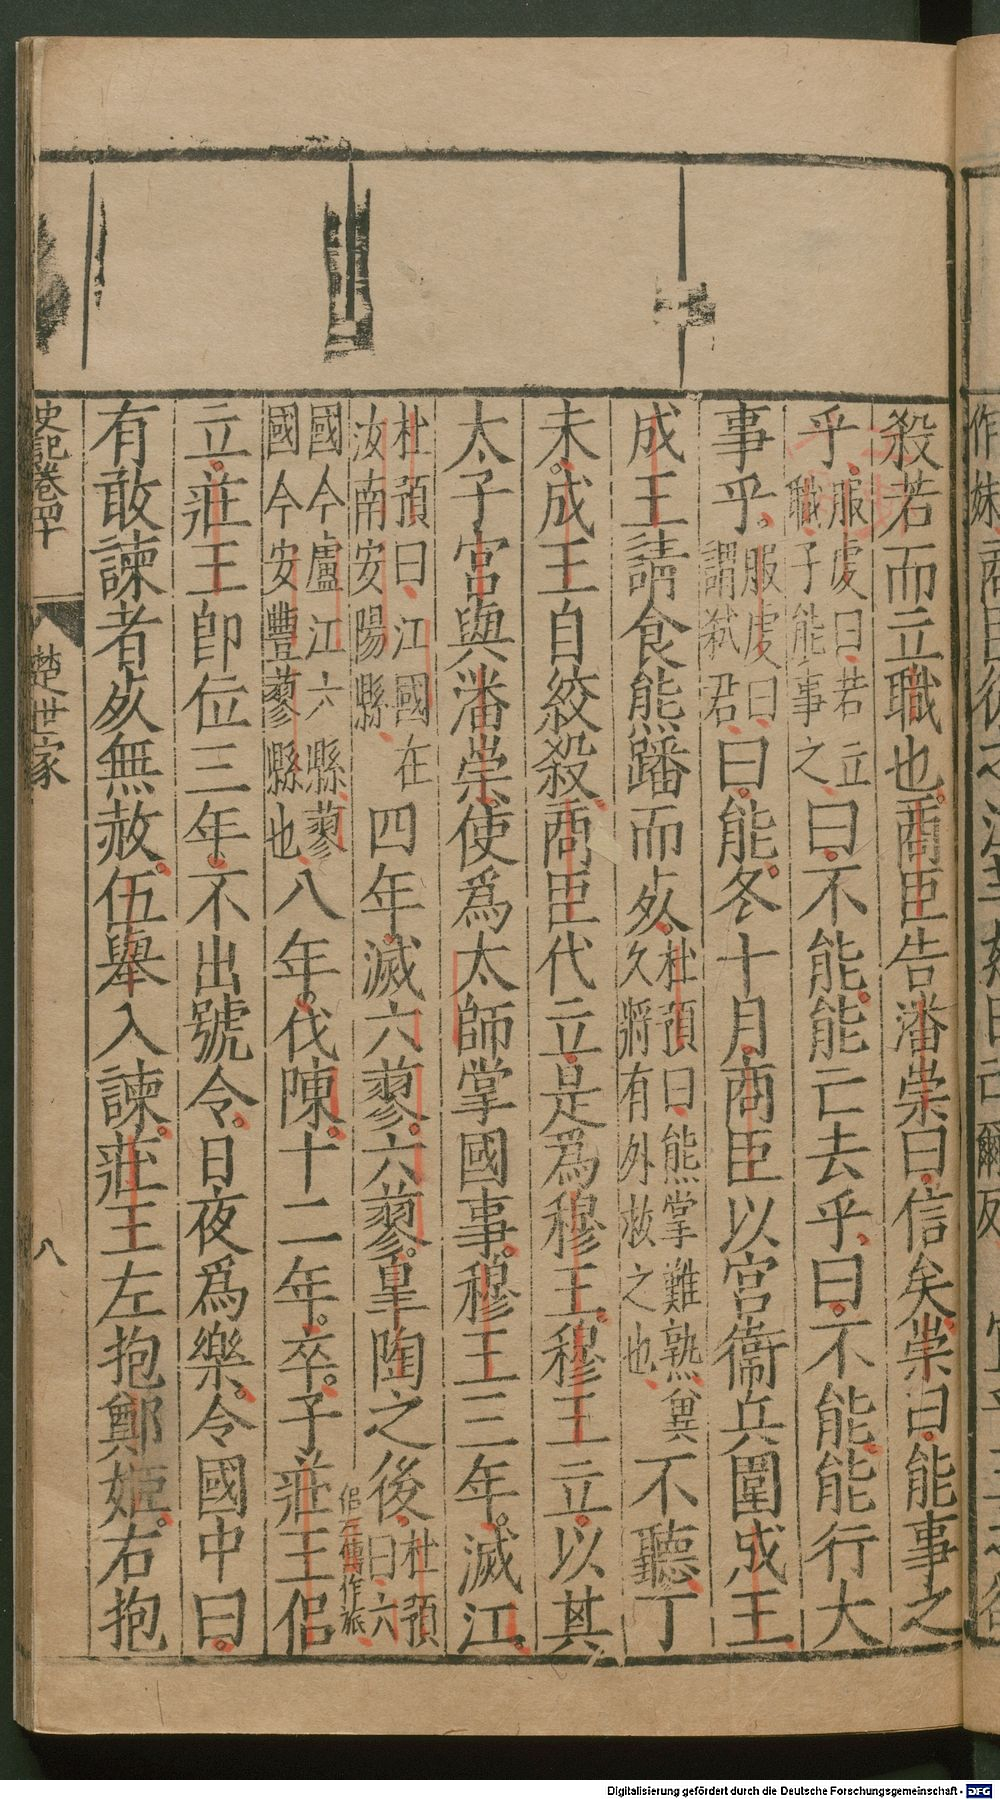 殺若而立職也商臣告潘崇曰信矣崇曰能事之
乎服虔曰若立職子能事之曰不能能亡去乎曰不能能行大
事乎服虔曰謂弑君曰能冬十月商臣以宮衞兵圍成王
成王請食熊蹯而死杜預曰熊掌難熟兾久將有外救之也不聽丁
未成王自絞殺商臣代立是爲穆王穆王立以其
太子宮與潘崇使爲太師掌國事穆王三年滅江
杜預曰江國在汝南安陽縣四年滅六蓼六蓼臯陶之後杜預曰六
國今廬江六縣蓼國今安豐蓼縣也八年伐陳十二年卒子莊王侶侶左傳作旅
立莊王即位三年不出號令日夜爲樂令國中曰
有敢諫者死無赦伍舉入諫莊王左抱鄭姬右抱
史記卷四十
楚世家
八
Digitalisierung gefördert durch die Deutsche Forschungsgemeinschaft - DFG